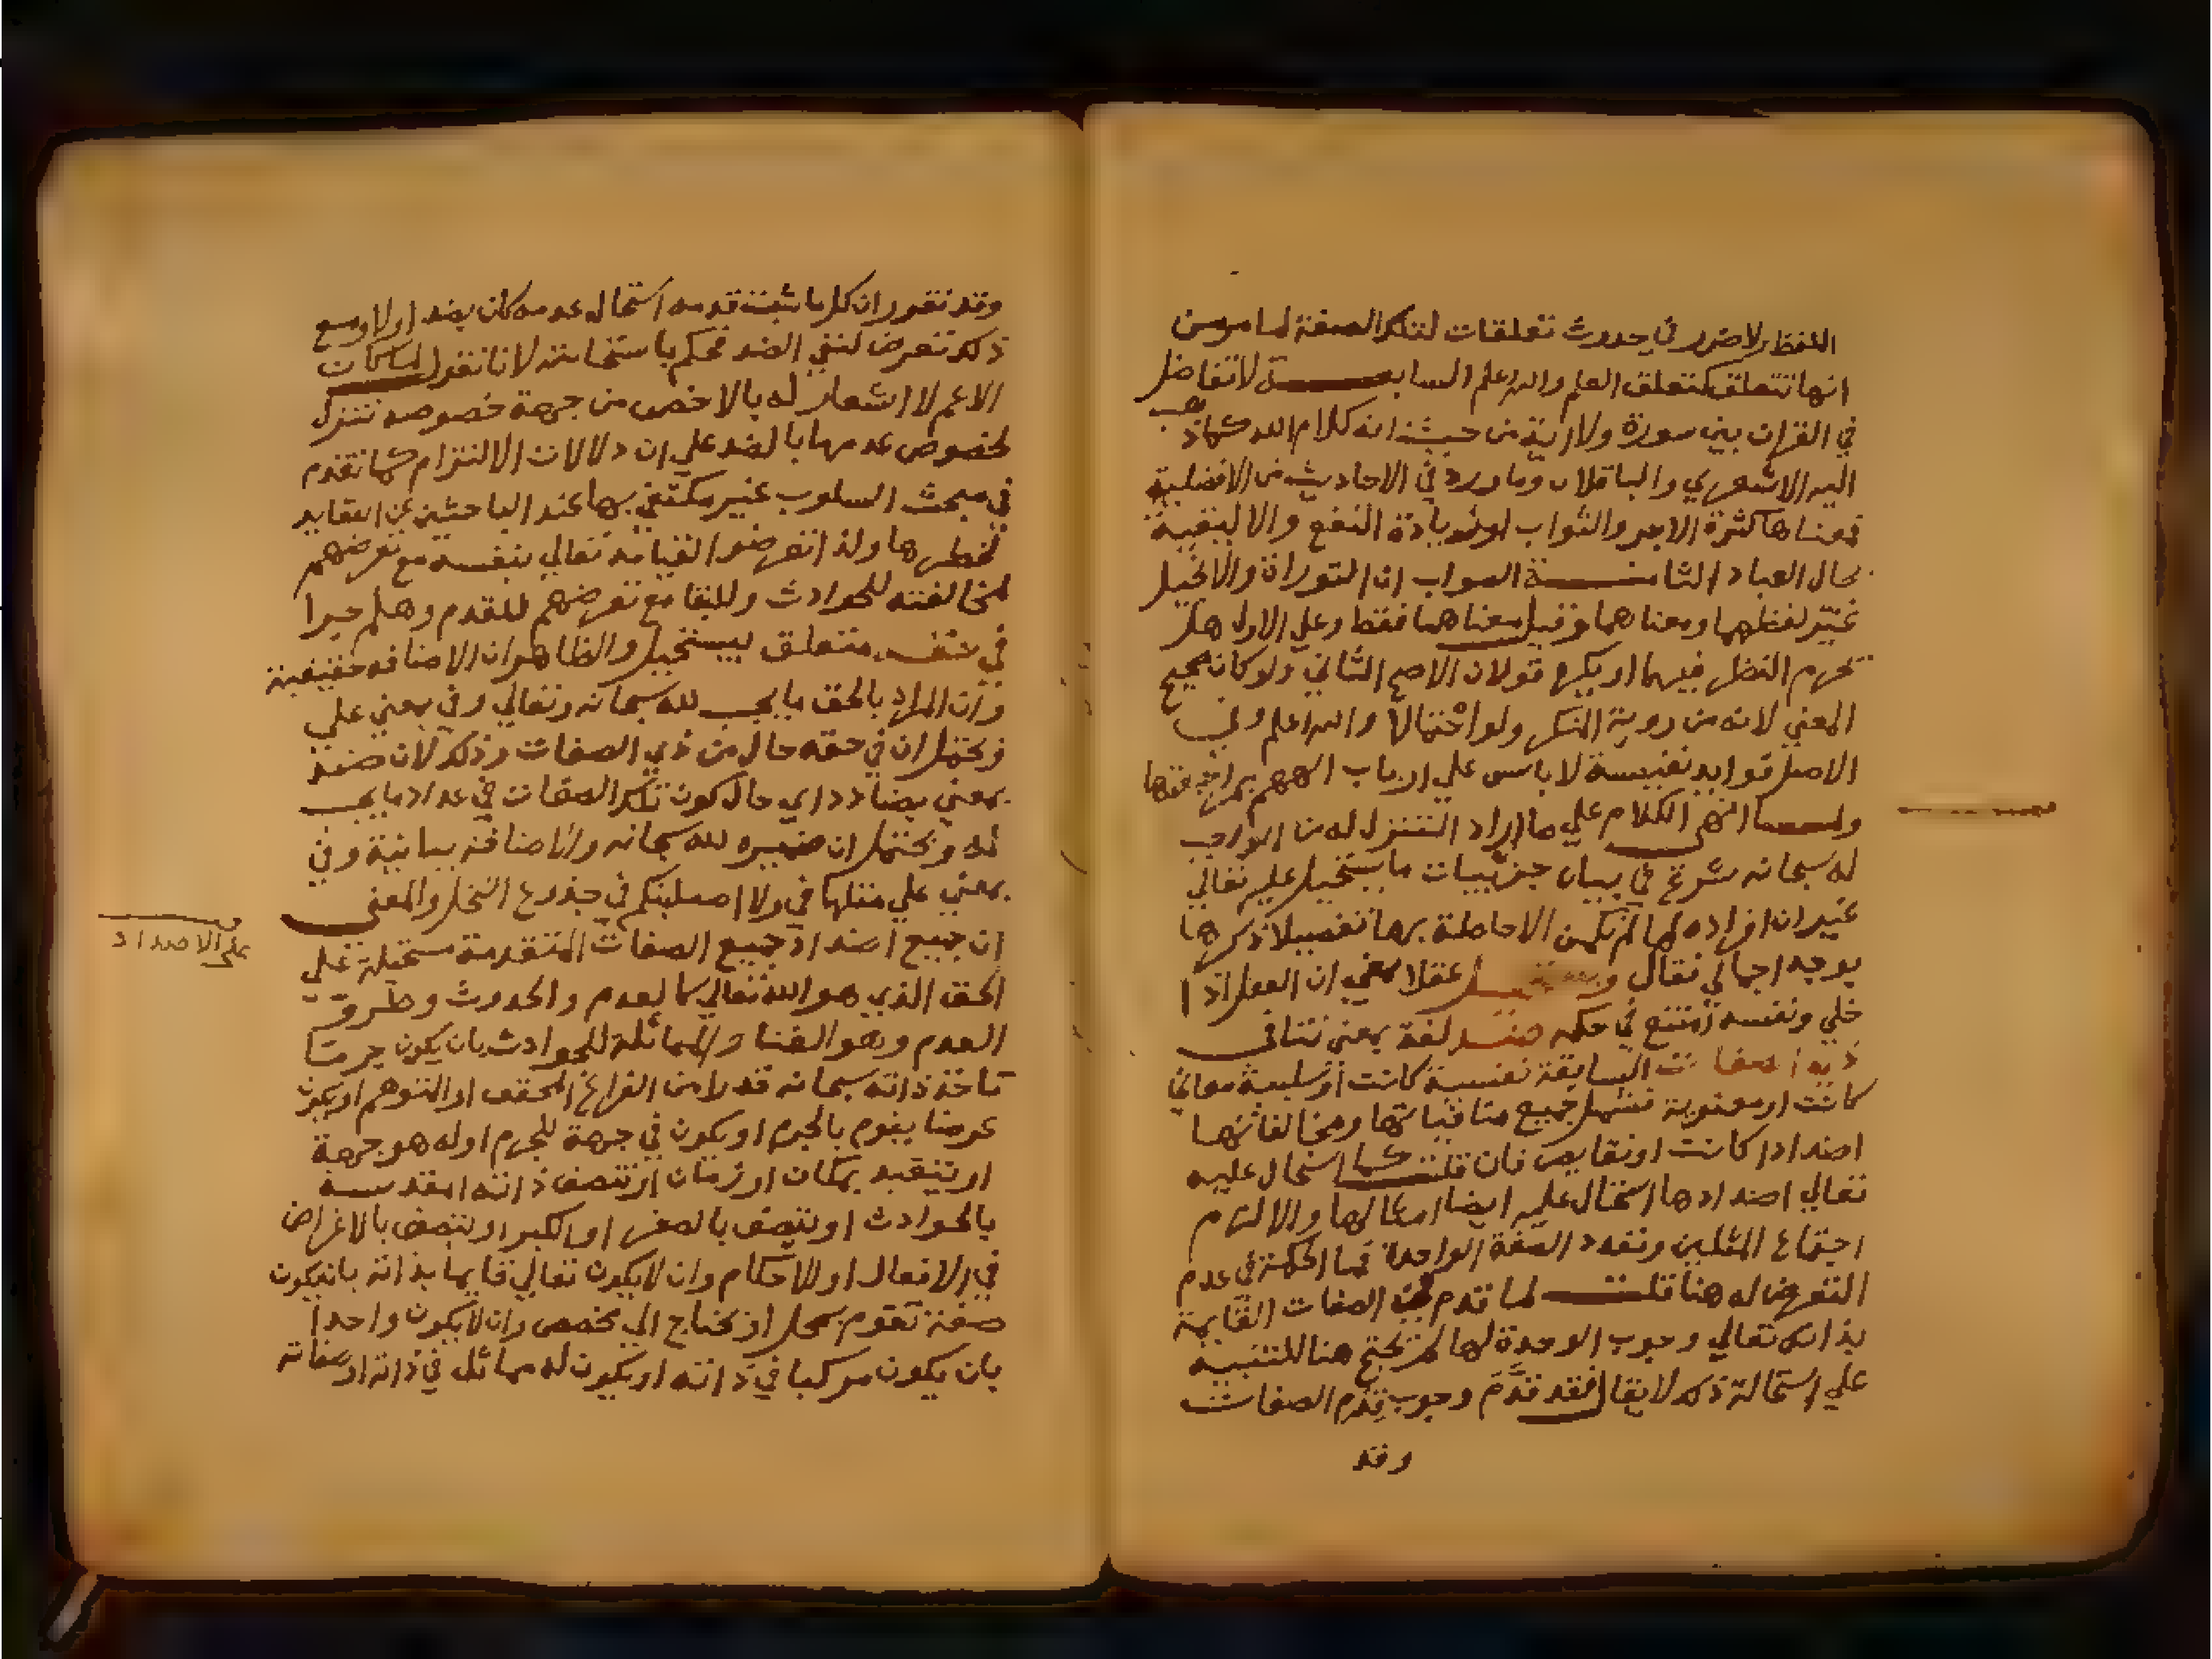 اللفظ ولا ضرر في حدوث تعلقات لتلك الصفة لما مر من
انها تتعلق كتعلق العلم والله اعلم السابعة لا تفاضل
في القران بين سورة ولا اية من حيث انه كلام الله كما ذهب
اليه الاشعري والباقلان وما ورد في الاحاديث من الافضلية
فمعناها كثرة الاجر والثواب او زيادة النفع والاليقية
بحال العباد الثامنة الصواب ان التوراة والانجيل
غير لفظهما ومعناهما وقيل معناهما فقط وعلي الاول هل
يحرم النظر فيهما او يكره قولان الاصح الثاني ولو كان صحيح
المعني لانه من روية المنكر ولو احتمالا والله اعلم وفي
الاصل فوايد نفيسة لا باس علي ارباب الهمم بمراجعتها
ولما انهى الكلام علي ما اراد التنزل له من الواجب
له سبحانه شرع في بيان جزئيات ما يستحيل عليه تعالي
غير ان افراده لما لم تكن الاحاطة بها تفصيلا ذكرها
بوجه اجمالي فقال ويستحيل عقلا بمعني ان العقل اذا
خلي ونفسه امتنع في حكمه ضد لغة بمعنى تنافى
ذي الصفات السابقة نفسية كانت او سلبية معاني
كانت او معنوية فشمل جميع منافياتها ومخالفاتها
اضدادا كانت او نقايص فان قلت كما استحال عليه
تعالي اضدادها استحال عليه ايضا امثالها والا لزم
اجتماع المثلين وتعدد الصفة الواحدة فما الحكمة في عدم
التعرض له هنا قلت لما قدم في الصفات القايمة
بذاته تعالي وجوب الوحدة لها لم يحتج هنا للتنبيه
علي استحالة ذلك لا يقال فقد قدم وجوب قدم الصفات
وقد
وقد تقرر ان كل ما ثبت قدمه استحال عدمه كان بضد او لا ومع
ذلك تعرض لنفي الضد فحكم باستحالته لانا نقول لما كان
الاعم لا اشعار له بالاخص من جهة خصوصه تنزل
لخصوص عدمها بالضد علي ان دلالات الالتزام كما تقدم
في مبحث السلوب غير مكتفي بها عند الباحثين عن العقايد
لخطرها ولذا تعرضوا لقيامه تعالي بنفسه مع تعرضهم
لمخالفته للحوادث وللبقا مع تعرضهم للقدم وهلم جرا
في حقه متعلق بيستحيل والظاهر ان الاضافة حقيقية
وان المراد بالحق ما يجب لله سبحانه وتعالي وفي بمعني علي
ويحتمل ان في حقه حال من ذي الصفات وذلك لان ضد
بمعني يضادد اي حال كون تلك الصفات في عداد ما يجب
له ويحتمل ان ضميره لله سبحانه والاضافة بيانية وفي
بمعني علي مثلها في ولا اصلبنكم في جذوع النخل والمعنى
ان جميع اضداد جميع الصفات المتقدمة مستحيلة علي
الحق الذي هو الله تعالي كالعدم والحدوث وطرو
العدم وهو الفنا والمماثلة للحوادث بان يكون جرما
تاخذ ذاته سبحانه قدرا من الفراغ المحقق او المتوهم او يكون
عرضا يقوم بالجرم او يكون في جهة للجرم او له هو جهة
او يتقيد بمكان او زمان او تتصف ذاته المقدسة
بالحوادث او يتصف بالصغر او الكبر او يتصف بالاغراض
في الافعال او الاحكام وان لا يكون تعالي قايما بذاته بان يكون
صفة تقوم بمحل او يحتاج الي مخصص وان لا يكون واحدا
بان يكون مركبا في ذاته او يكون له مماثل في ذاته او صفاته
على الاضداد